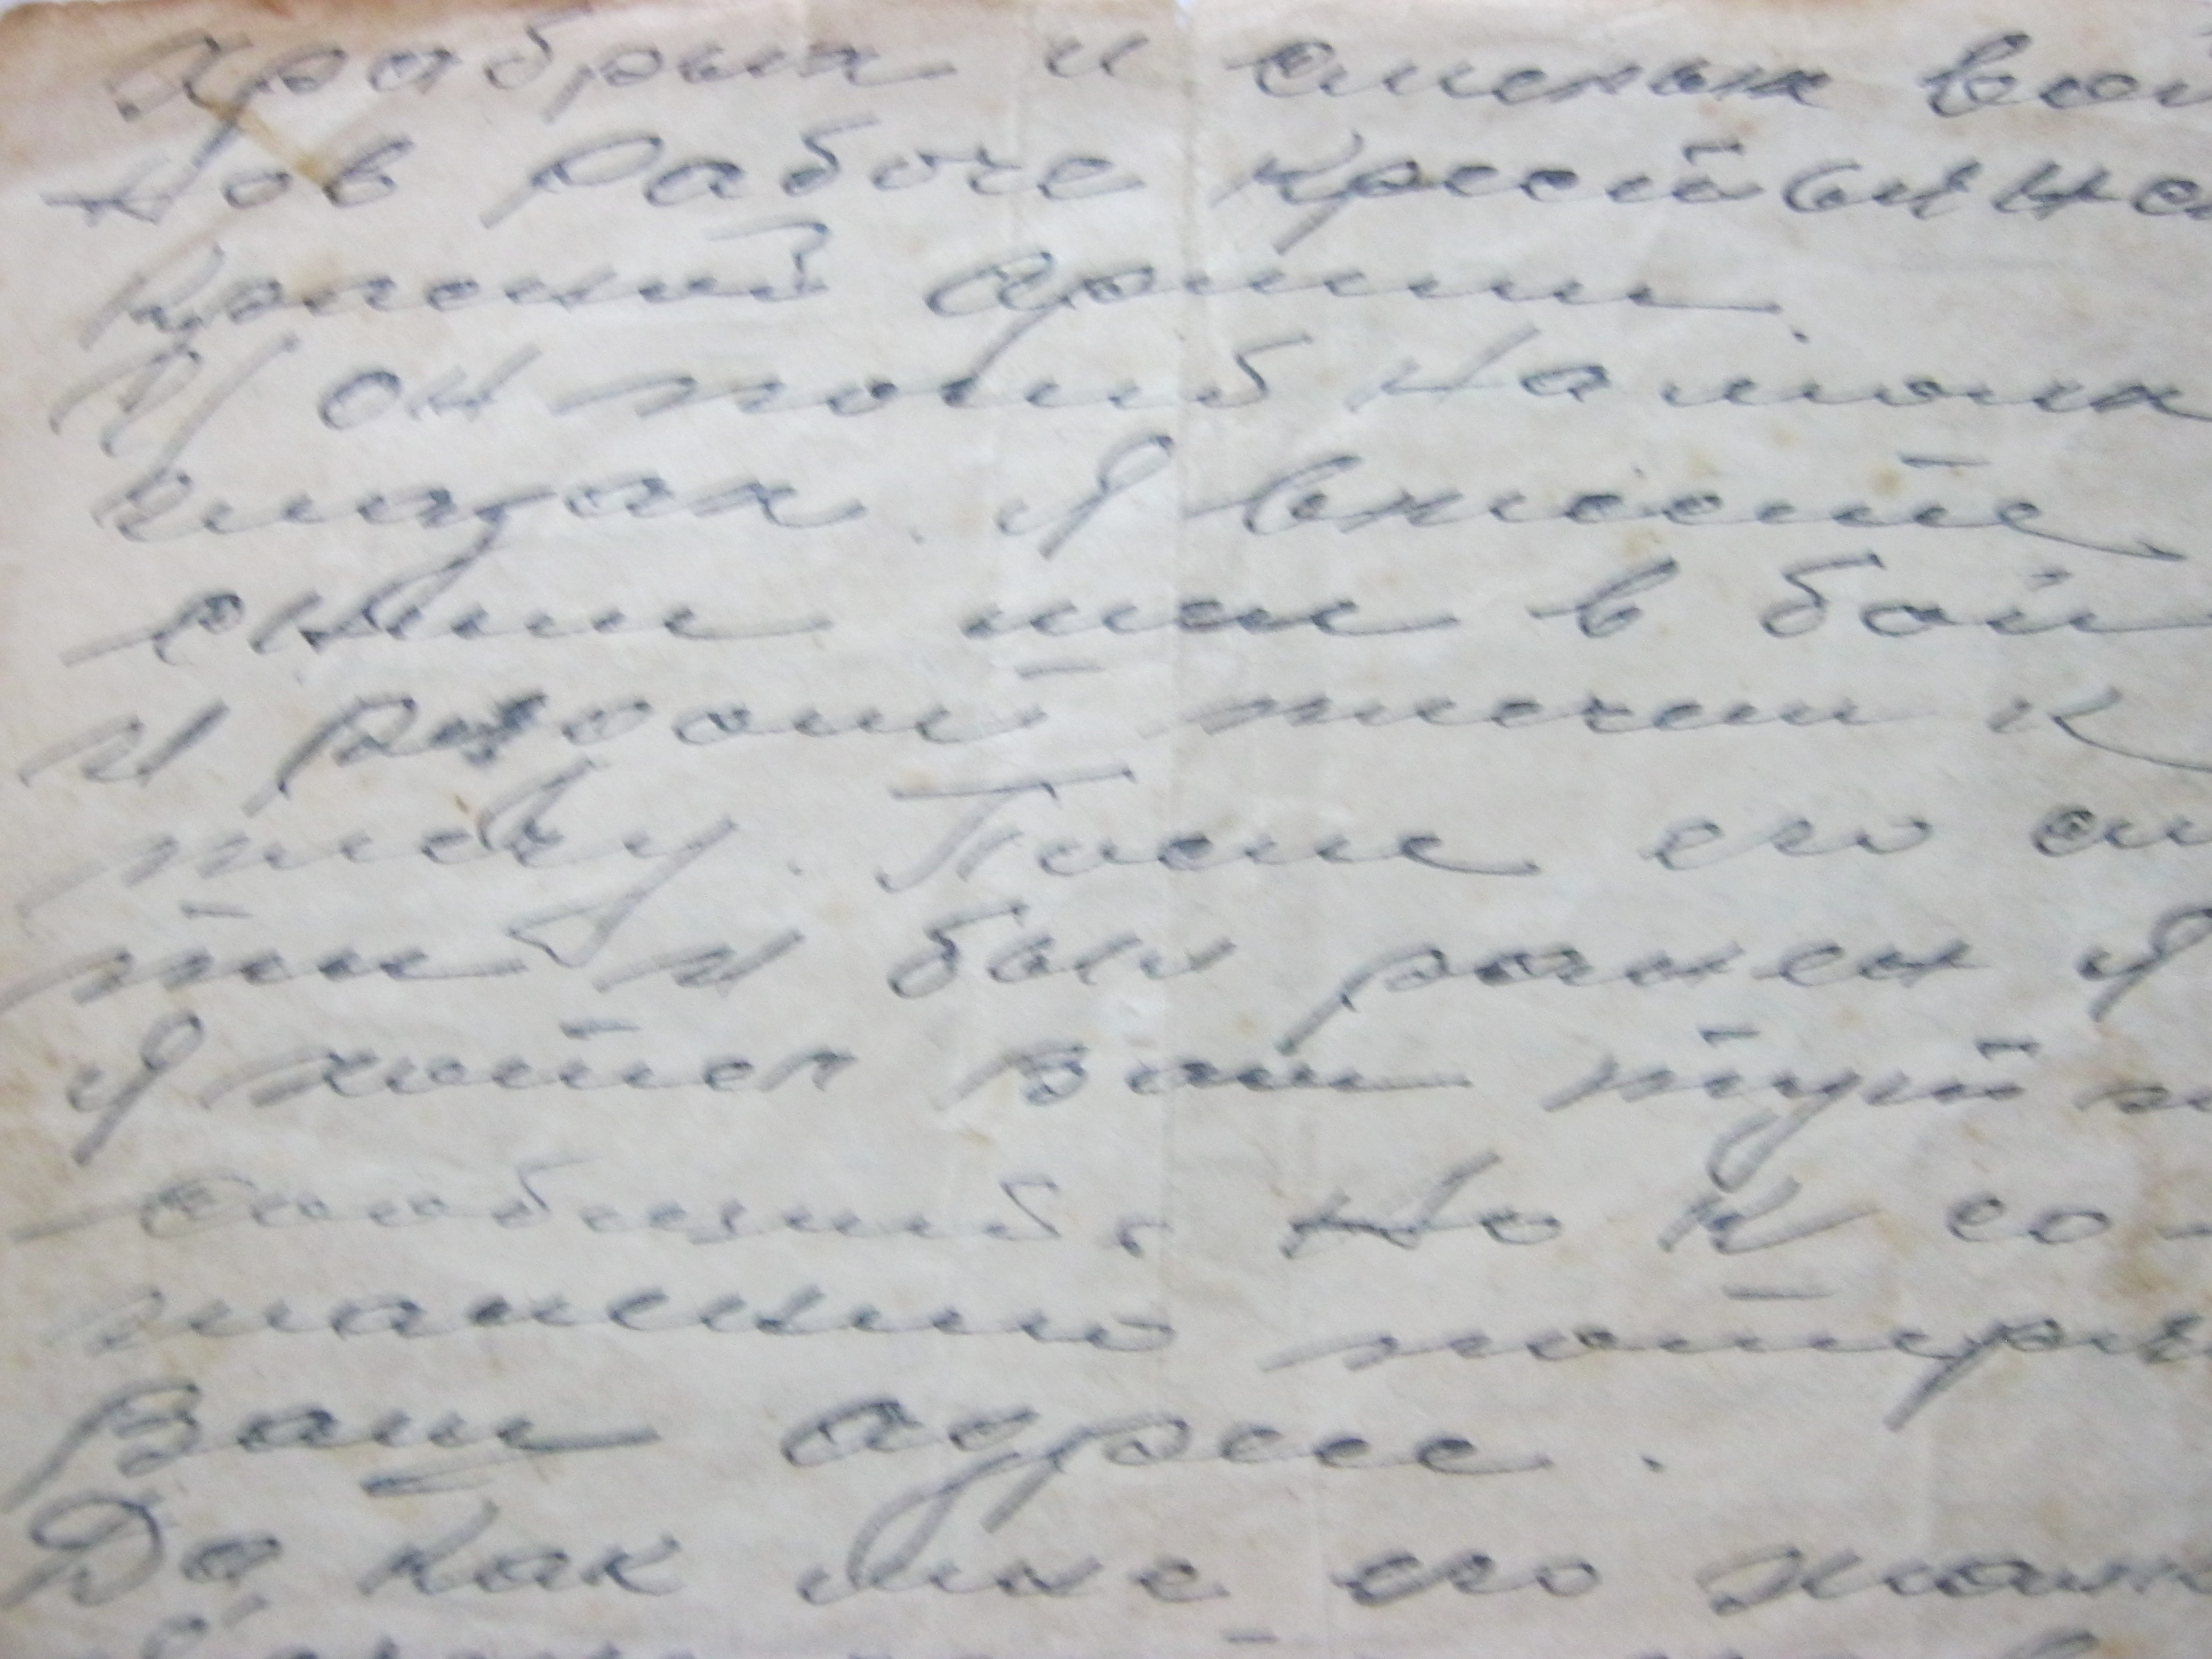 Храбрых и смелых вой
нов рабоче крестьянс
Красной армии.
И он погиб на моих
глазах. Я вместе
с ним шел в бой
и рядом плечем к
плечу. После его см
рти и был ранен я
Я хотел Вам тут п
сообщить. Но к со-
жалению потеря
Ваш адресс.
Да как мне его жалко